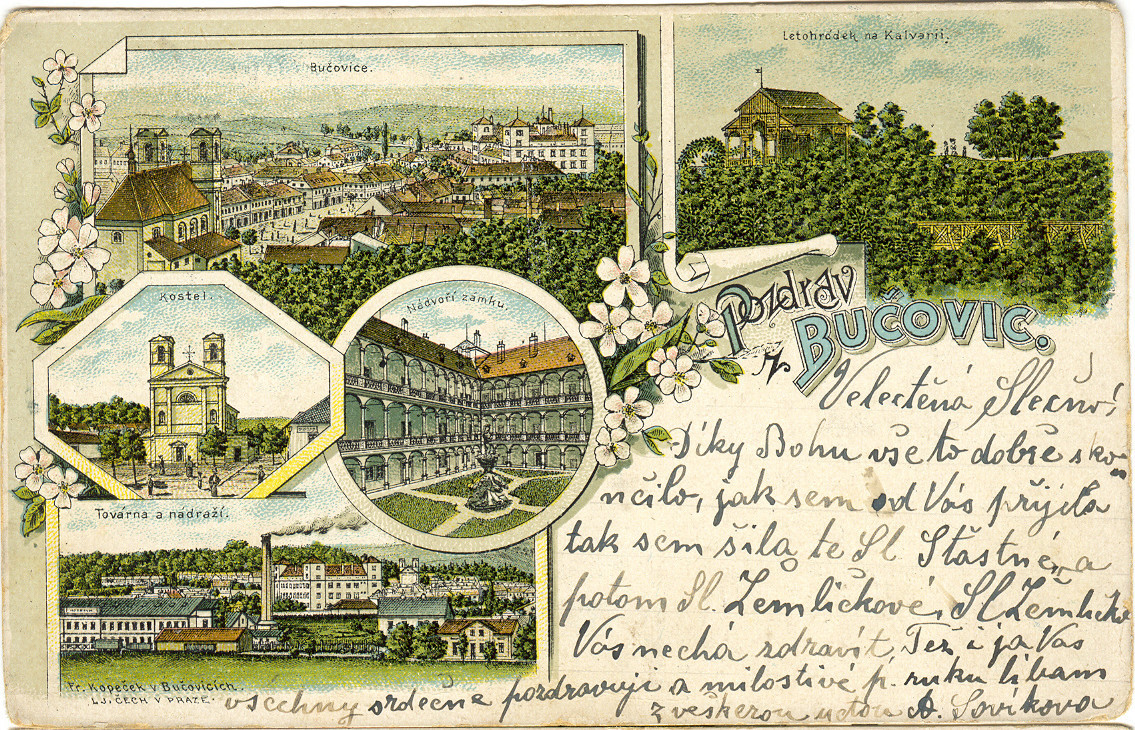 Bučovice.
Letohrádek na Kalvarii.
Kostel.
Nádvoří zámku.
Pozdrav
z BUČOVIC.
Továrna a nádraží.
Fr. Kopeček v Bučovicích.
LJ. ČECH V PRAZE.
Velectěná Slečno!
Díky Bohu vše to dobře sko
nčilo, jak sem od Vás přijela
tak sem šila te Sl. Šťastné, a
potom Sl. Zemličkové. Sl Žemličko
Vás nechá zdravit, Tez i ja Vas
všechny srdečne pozdravuji a milostivé p. ruku líbam
z veškerou uctou A. Sovikova